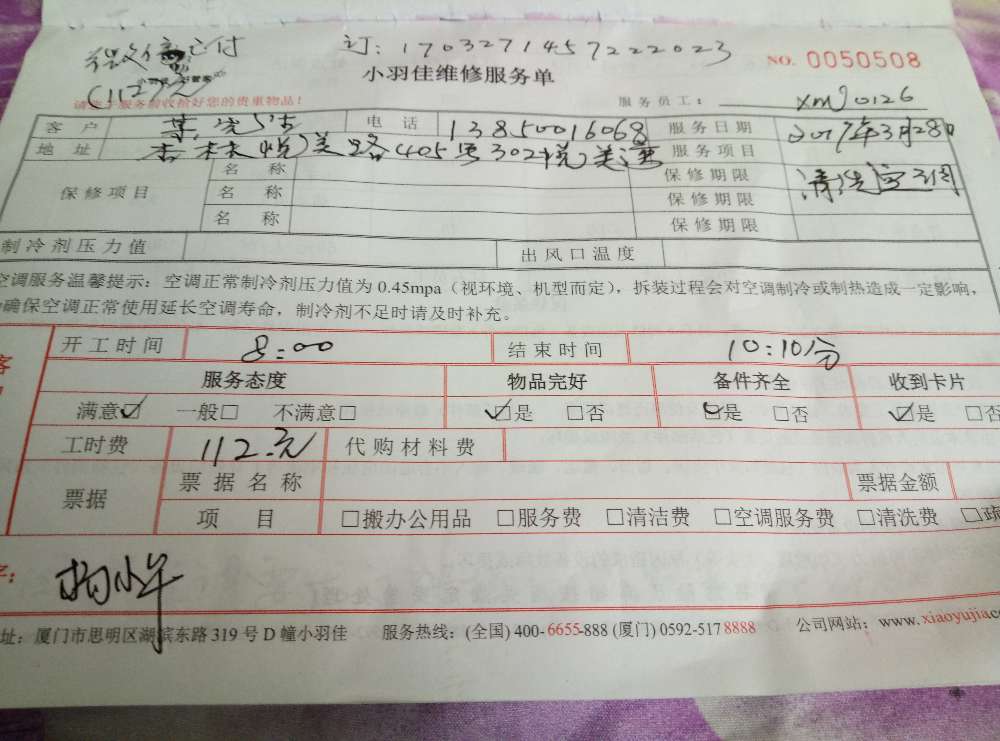 微信支付 订:1703271457222023
(112元) 小羽佳维修服务单 NO. 0050508
请您于服务前收拾好您的贵重物品! 服务员工: XMJ0126
客户 电话 13850016068 服务日期 2017年3月28日
地址 杏林悦美路405号302悦美 服务项目 清洗空调
保修项目 名称 保修期限
名称 保修期限
名称 保修期限
制冷剂压力值 出风口温度
空调服务温馨提示:空调正常制冷剂压力值为0.45mpa(视环境、机型而定),拆装过程会对空调制冷或制热造成一定影响,
确保空调正常使用延长空调寿命,制冷剂不足时请及时补充。
客 开工时间 8:00 结束时间 10:10分
服务态度 物品完好 备件齐全 收到卡片
满意☑ 一般□ 不满意□ ☑是 □否 ☑是 □否 ☑是 □否
工时费 112.元 代购材料费
票据 票据名称 票据金额
项目 □搬办公用品 □服务费 □清洁费 □空调服务费 □清洗费 □疏
字:
址:厦门市思明区湖滨东路319号D幢小羽佳 服务热线:(全国)400-6655-888 (厦门)0592-5178888 公司网站:www.xiaoyujia